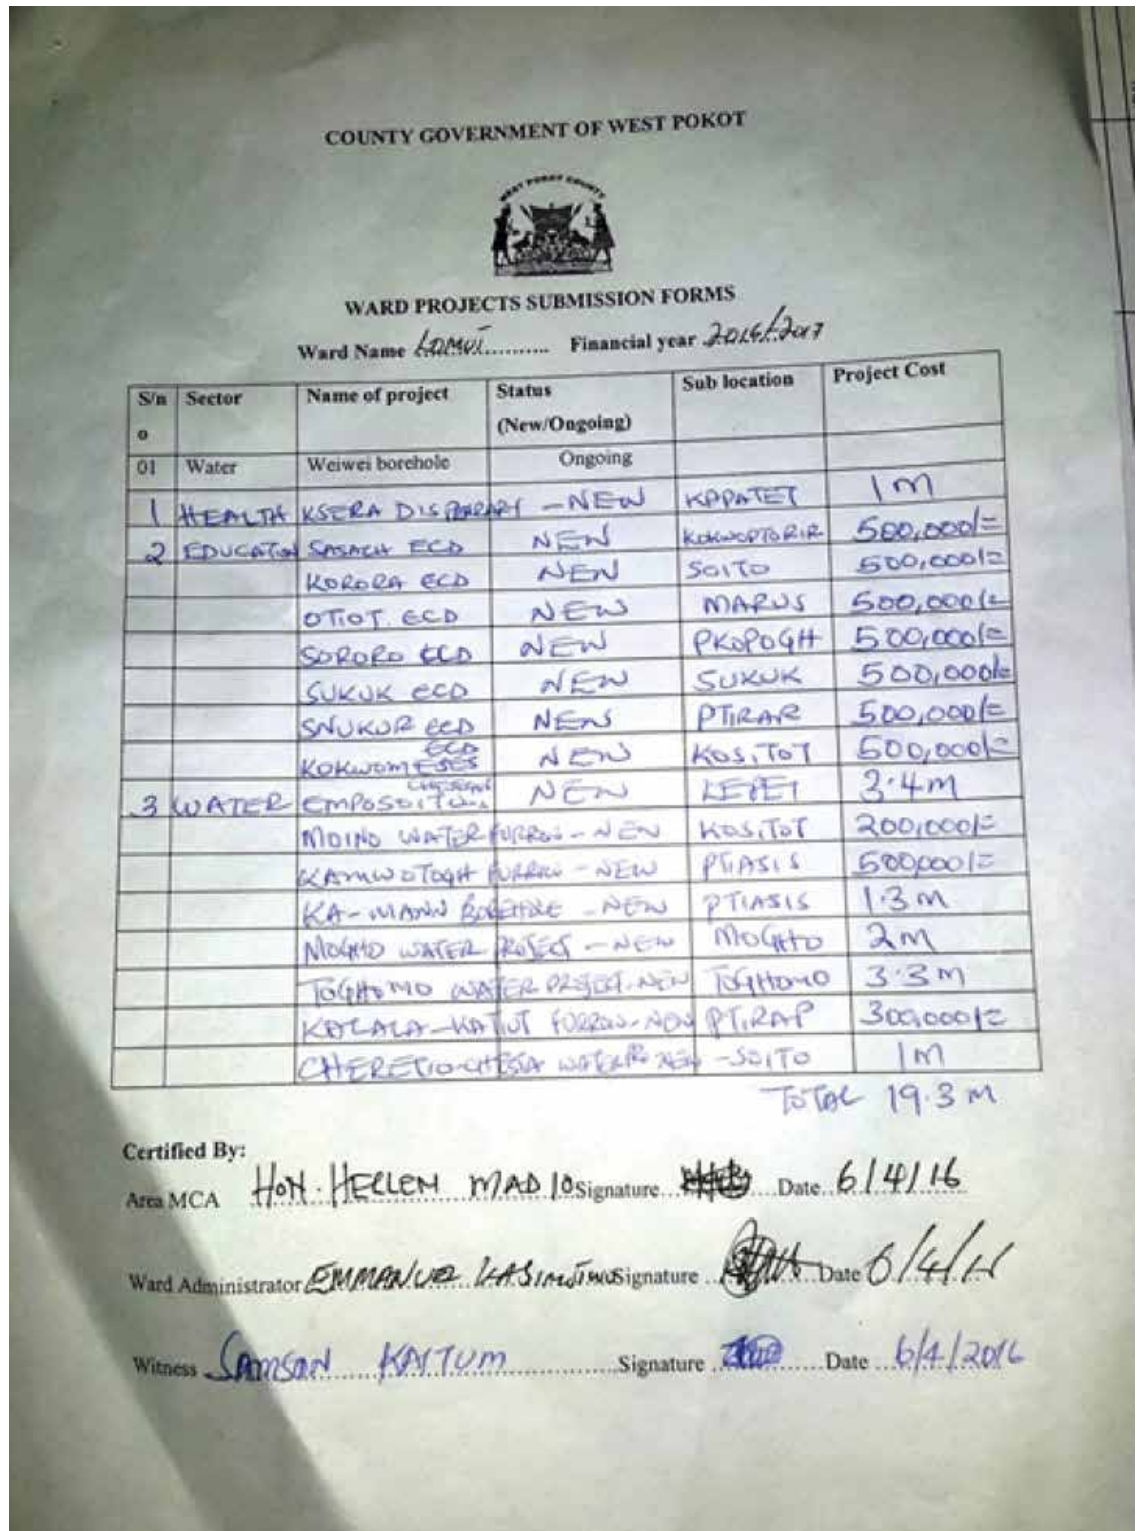 COUNTY GOVERNMENT OF WEST POKOT
WEST POKOT COUNTY
WARD PROJECTS SUBMISSION FORMS
Ward Name LOMUT .......... Financial year 2016/2017
S/n o Sector Name of project Status (New/Ongoing) Sub location Project Cost
01 Water Weiwei borehole Ongoing
1 HEALTH KSERA DISPENSARY - NEW KAPATET 1M
2 EDUCATION SASACH ECD NEW KOKWOPTORIR 500,000/=
KORORA ECD NEW SOITO 500,000/=
OTIOT. ECD NEW MARUS 500,000/=
SORORO ECD NEW PKOPOGH 500,000/=
SUKUK ECD NEW SUKUK 500,000/=
SNUKUR ECD NEW PTIRAR 500,000/=
KOKWOMESES ECD NEW KOSITOT 500,000/=
3 WATER NEW LEPEI 3.4M
MOINO WATER FURROW - NEW KOSITOT 200,000/=
KAMWOTOGH FURROW - NEW PTIASIS 500,000/=
KA-MANN BOREHOLE - NEW PTIASIS 1.3M
MOGHO WATER PROJECT - NEW MOGHO 2M
TOGHOMO WATER PROJECT - NEW TOGHOMO 3.3M
KALALA-KATUT FURROW - NEW PTIRAP 300,000/=
WATER NEW - SOITO 1M
TOTAL 19.3M
Certified By:
Area MCA HON. HELLEN MADIO Signature ..... Date 6/4/16
Ward Administrator EMMANUEL Signature ..... Date 6/4/16
Witness SAMSON KAITUM Signature ..... Date 6/4/2016